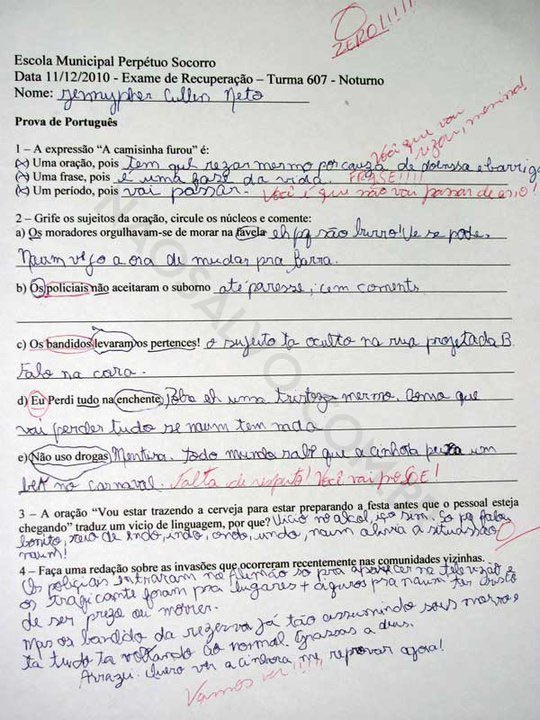 ZERO!!!!!
Escola Municipal Perpétuo Socorro
Data 11/12/2010 - Exame de Recuperação – Turma 607 - Noturno
Nome: Jennypher Cullen Neto
Prova de Português
Você que vai rezar, menina!
1 – A expressão “A camisinha furou” é:
(x) Uma oração, pois tem qui rezar mermo por cauza de doenssa e barriga
(x) Uma frase, pois é uma fase da vida. FRASE!!!!
(x) Um período, pois vai passar. Você é que não vai passar de ano!
2 – Grife os sujeitos da oração, circule os núcleos e comente:
a) Os moradores orgulhavam-se de morar na favela eh pq são burro! Ve se pode.
Naum vejo a ora de mudar pra Barra.
b) Os policiais não aceitaram o suborno até paresse, cem coments
c) Os bandidos levaram os pertences! o sujeito ta oculto na rua projetada B.
Falo na cara.
d) Eu Perdi tudo na enchente, Poba eh uma tristeza mermo. Coma que
vai perder tudo se naum tem nada
e) Não uso drogas Mentira. Todo mundo sabe que a cinhora puxa um
bek no carnaval. Falta de respeito! Você vai pro SOE!
3 – A oração “Vou estar trazendo a cerveja para estar preparando a festa antes que o pessoal esteja
chegando” traduz um vicio de linguagem, por que? Vicio no alcol, iço sim. So pq falou
bonito, xeio de endo, indo, ondo, undo, naum alivia a situassão
naum!
4 – Faça uma redação sobre as invasões que ocorreram recentemente nas comunidades vizinhas.
Os poliças entraram no Alemão so pra aparesser na televizão e
os traficante foram pra lugares + ceguros pra naum ter risco
de ser prezo ou morrer.
Mas os bandido da rezerva já tão assumindo seus morros e
ta tudo ta voltando ao normal. Grassas a deus.
Arrazei. Quero ver a cinhora me reprovar agora!
Vamos ver!!!!!
NAOSALVO.COM.BR